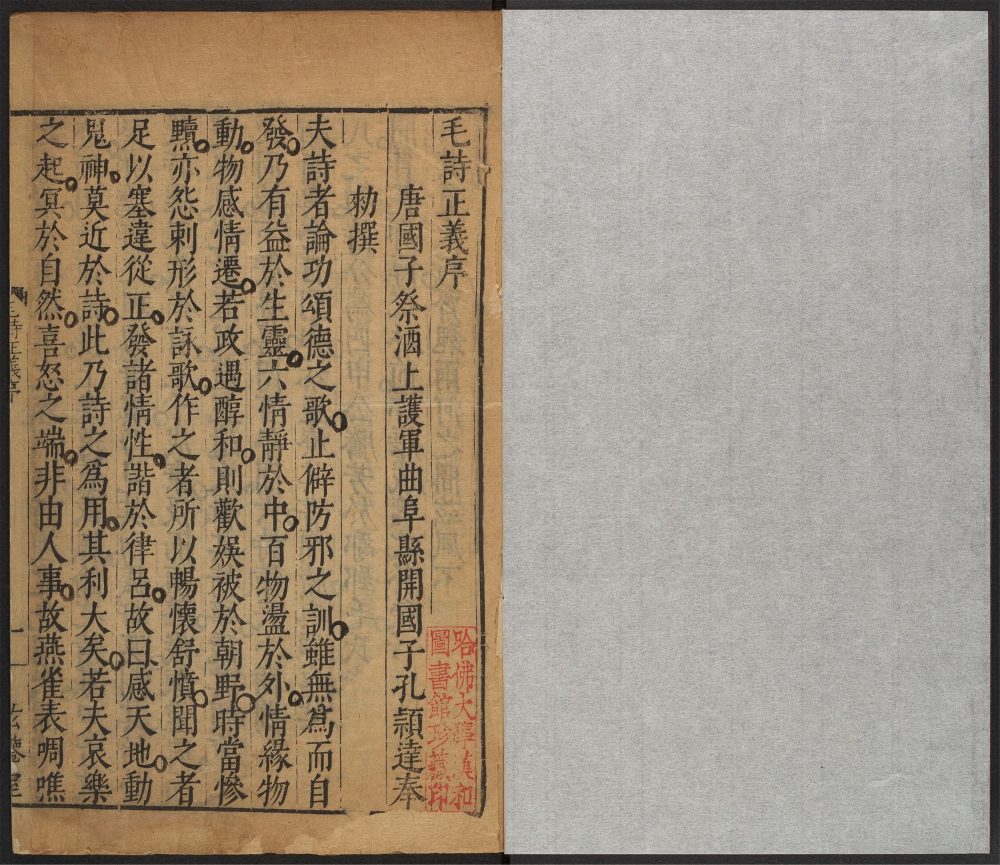 毛詩正義序
唐國子祭酒上護軍曲阜縣開國子孔穎達奉
勑撰
夫詩者論功頌德之歌止僻防邪之訓雖無爲而自
發乃有益於生靈六情靜於中百物盪於外情緣物
動物感情遷若政遇醇和則歡娛被於朝野時當慘
黷亦怨刺形於詠歌作之者所以暢懷舒憤聞之者
足以塞違從正發諸情性諧於律呂故曰感天地動
鬼神莫近於詩此乃詩之爲用其利大矣若夫哀樂
之起冥於自然喜怒之端非由人事故燕雀表啁噍
哈佛大學漢和
圖書館珍藏印